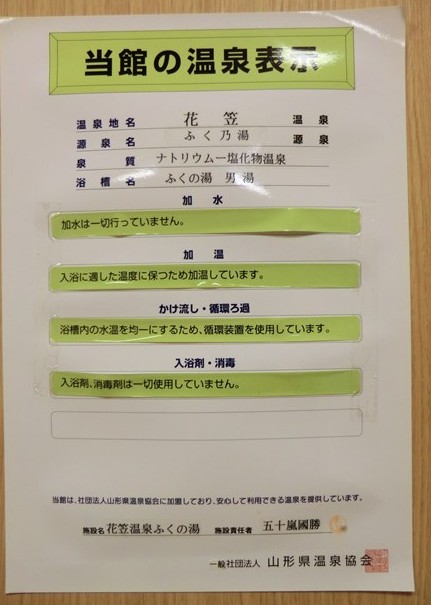 当館の温泉表示
温泉地名 花笠 温泉
源泉名 ふく乃湯 源泉
泉質 ナトリウムー塩化物温泉
浴槽名 ふくの湯 男湯
加水
加水は一切行っていません。
加温
入浴に適した温度に保つため加温しています。
かけ流し・循環ろ過
浴槽内の水温を均一にするため、循環装置を使用しています。
入浴剤・消毒
入浴剤、消毒剤は一切使用していません。
当館は、社団法人山形県温泉協会に加盟しており、安心して利用できる温泉を提供しています。
施設名 花笠温泉ふくの湯 施設責任者 五十嵐國勝
一般社団法人 山形県温泉協会